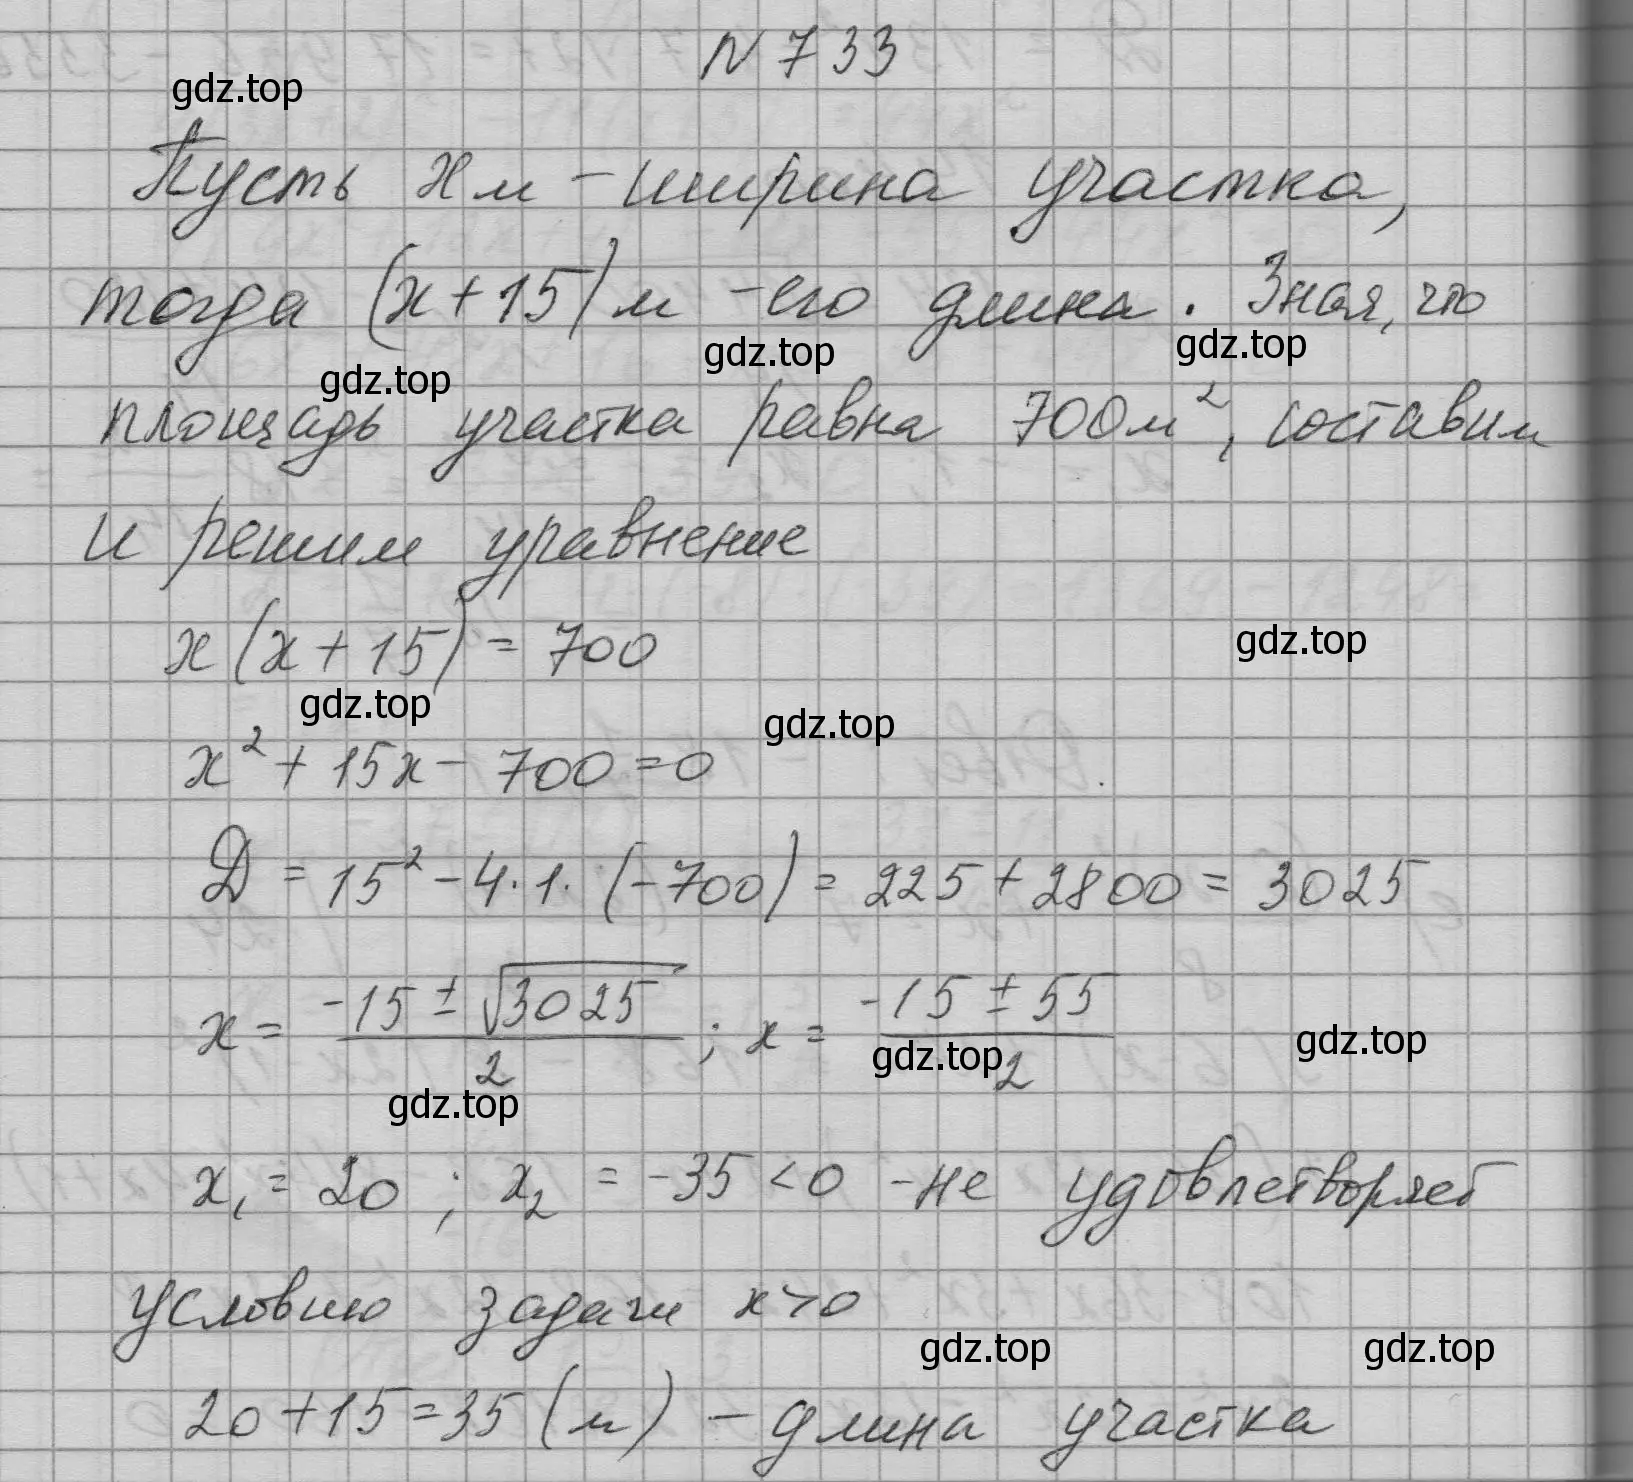 N 733
gdz.top
Пусть x м - ширина участка,
тогда (x + 15) м - его длина. Зная, что
gdz.top gdz.top gdz.top
площадь участка равна 700м², составим
и решим уравнение
x (x + 15) = 700
gdz.top
gdz.top gdz.top
x² + 15x - 700 = 0
D = 15² - 4 · 1 · (-700) = 225 + 2800 = 3025
x = (-15 ± √3025)/2 ; x = (-15 ± 55)/2
gdz.top gdz.top gdz.top
x₁ = 20 ; x₂ = -35 < 0 - не удовлетворяет
условию задачи x > 0
gdz.top gdz.top
20 + 15 = 35 (м) - длина участка